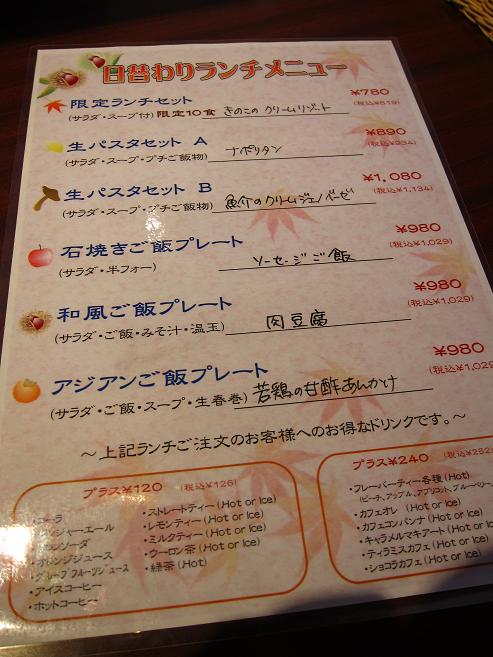 日替わりランチメニュー
限定ランチセット ¥780
(サラダ・スープ付) 限定10食 きのこのクリームリゾット (税込¥819)
生パスタセット A ¥890
(サラダ・スープ・プチご飯物) ナポリタン (税込¥934)
生パスタセット B ¥1,080
(サラダ・スープ・プチご飯物) 魚介のクリームジェノベーゼ (税込¥1,134)
石焼きご飯プレート ¥980
(サラダ・半フォー) ソーセージご飯 (税込¥1,029)
和風ご飯プレート ¥980
(サラダ・ご飯・みそ汁・温玉) 肉豆腐 (税込¥1,029)
アジアンご飯プレート ¥980
(サラダ・ご飯・スープ・生春巻) 若鶏の甘酢あんかけ (税込¥1,029
～上記ランチご注文のお客様へのお得なドリンクです。～
プラス¥120 (税込¥126)
・コーラ
・ジンジャーエール
・オレンジジュース
・グレープフルーツジュース
・アイスコーヒー
・ホットコーヒー
・ストレートティー(Hot or Ice)
・レモンティー(Hot or Ice)
・ミルクティー(Hot or Ice)
・ウーロン茶(Hot or Ice)
・緑茶(Hot)
プラス¥240 (税込¥252)
・フレーバーティー各種(Hot)
(ピーチ、アップル、アプリコット、ブルーベリー、
・カフェオレ (Hot or Ice)
・カフェコンパンナ(Hot or Ice)
・キャラメルマキアート(Hot or Ice)
・ティラミスカフェ(Hot or Ice)
・ショコラカフェ(Hot or Ice)